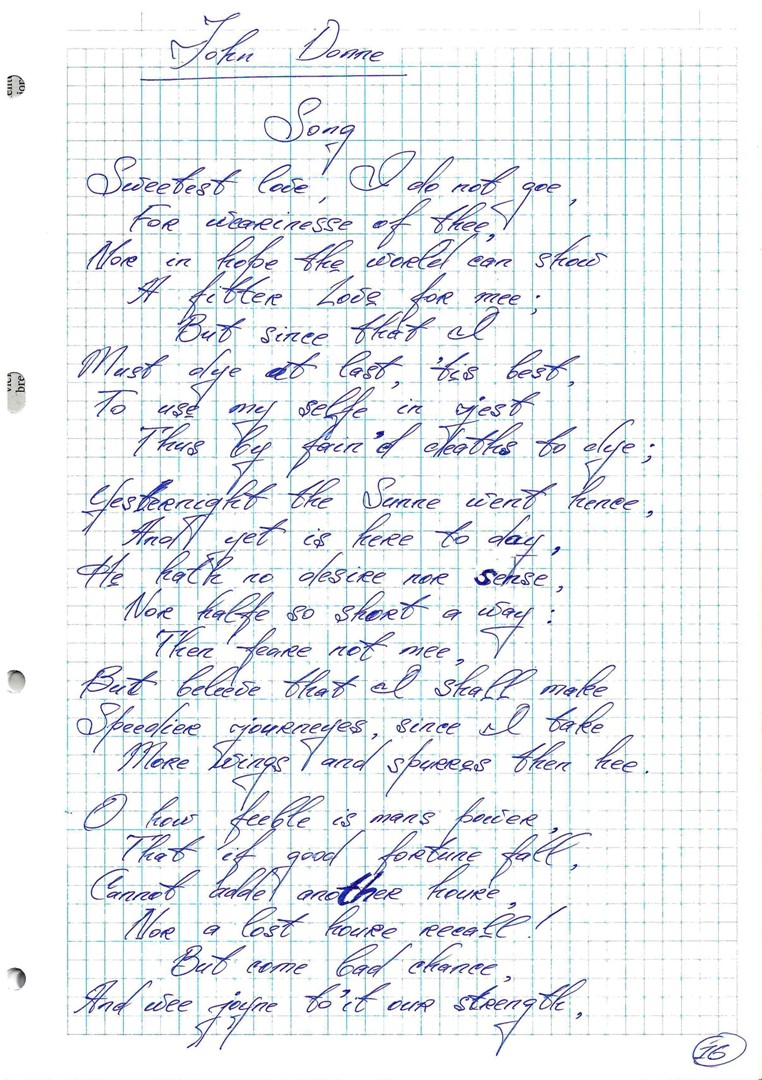 John Donne
Song
Sweetest love, I do not goe,
For wearinesse of thee,
Nor in hope the world can show
A fitter Love for mee;
But since that I
Must dye at last, 'tis best,
To use my selfe in jest
Thus by fain'd deaths to dye;
Yesternight the Sunne went hence,
And yet is here to day,
He hath no desire nor sense,
Nor halfe so short a way:
Then feare not mee,
But beleeve that I shall make
Speedier journeyes, since I take
More wings and spurres then hee.
O how feeble is mans power,
That if good fortune fall,
Cannot adde another houre,
Nor a lost houre recall!
But come bad chance,
And wee joyne to'it our strength,
16